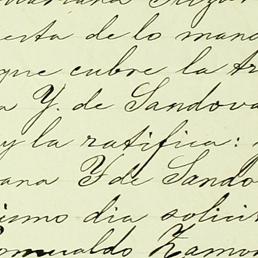 esta de lo mand
que cubre la tr
a Y. de Sandova
y la ratifica:
ana Y de Sando
ismo dia solicit
Romualdo Zamor